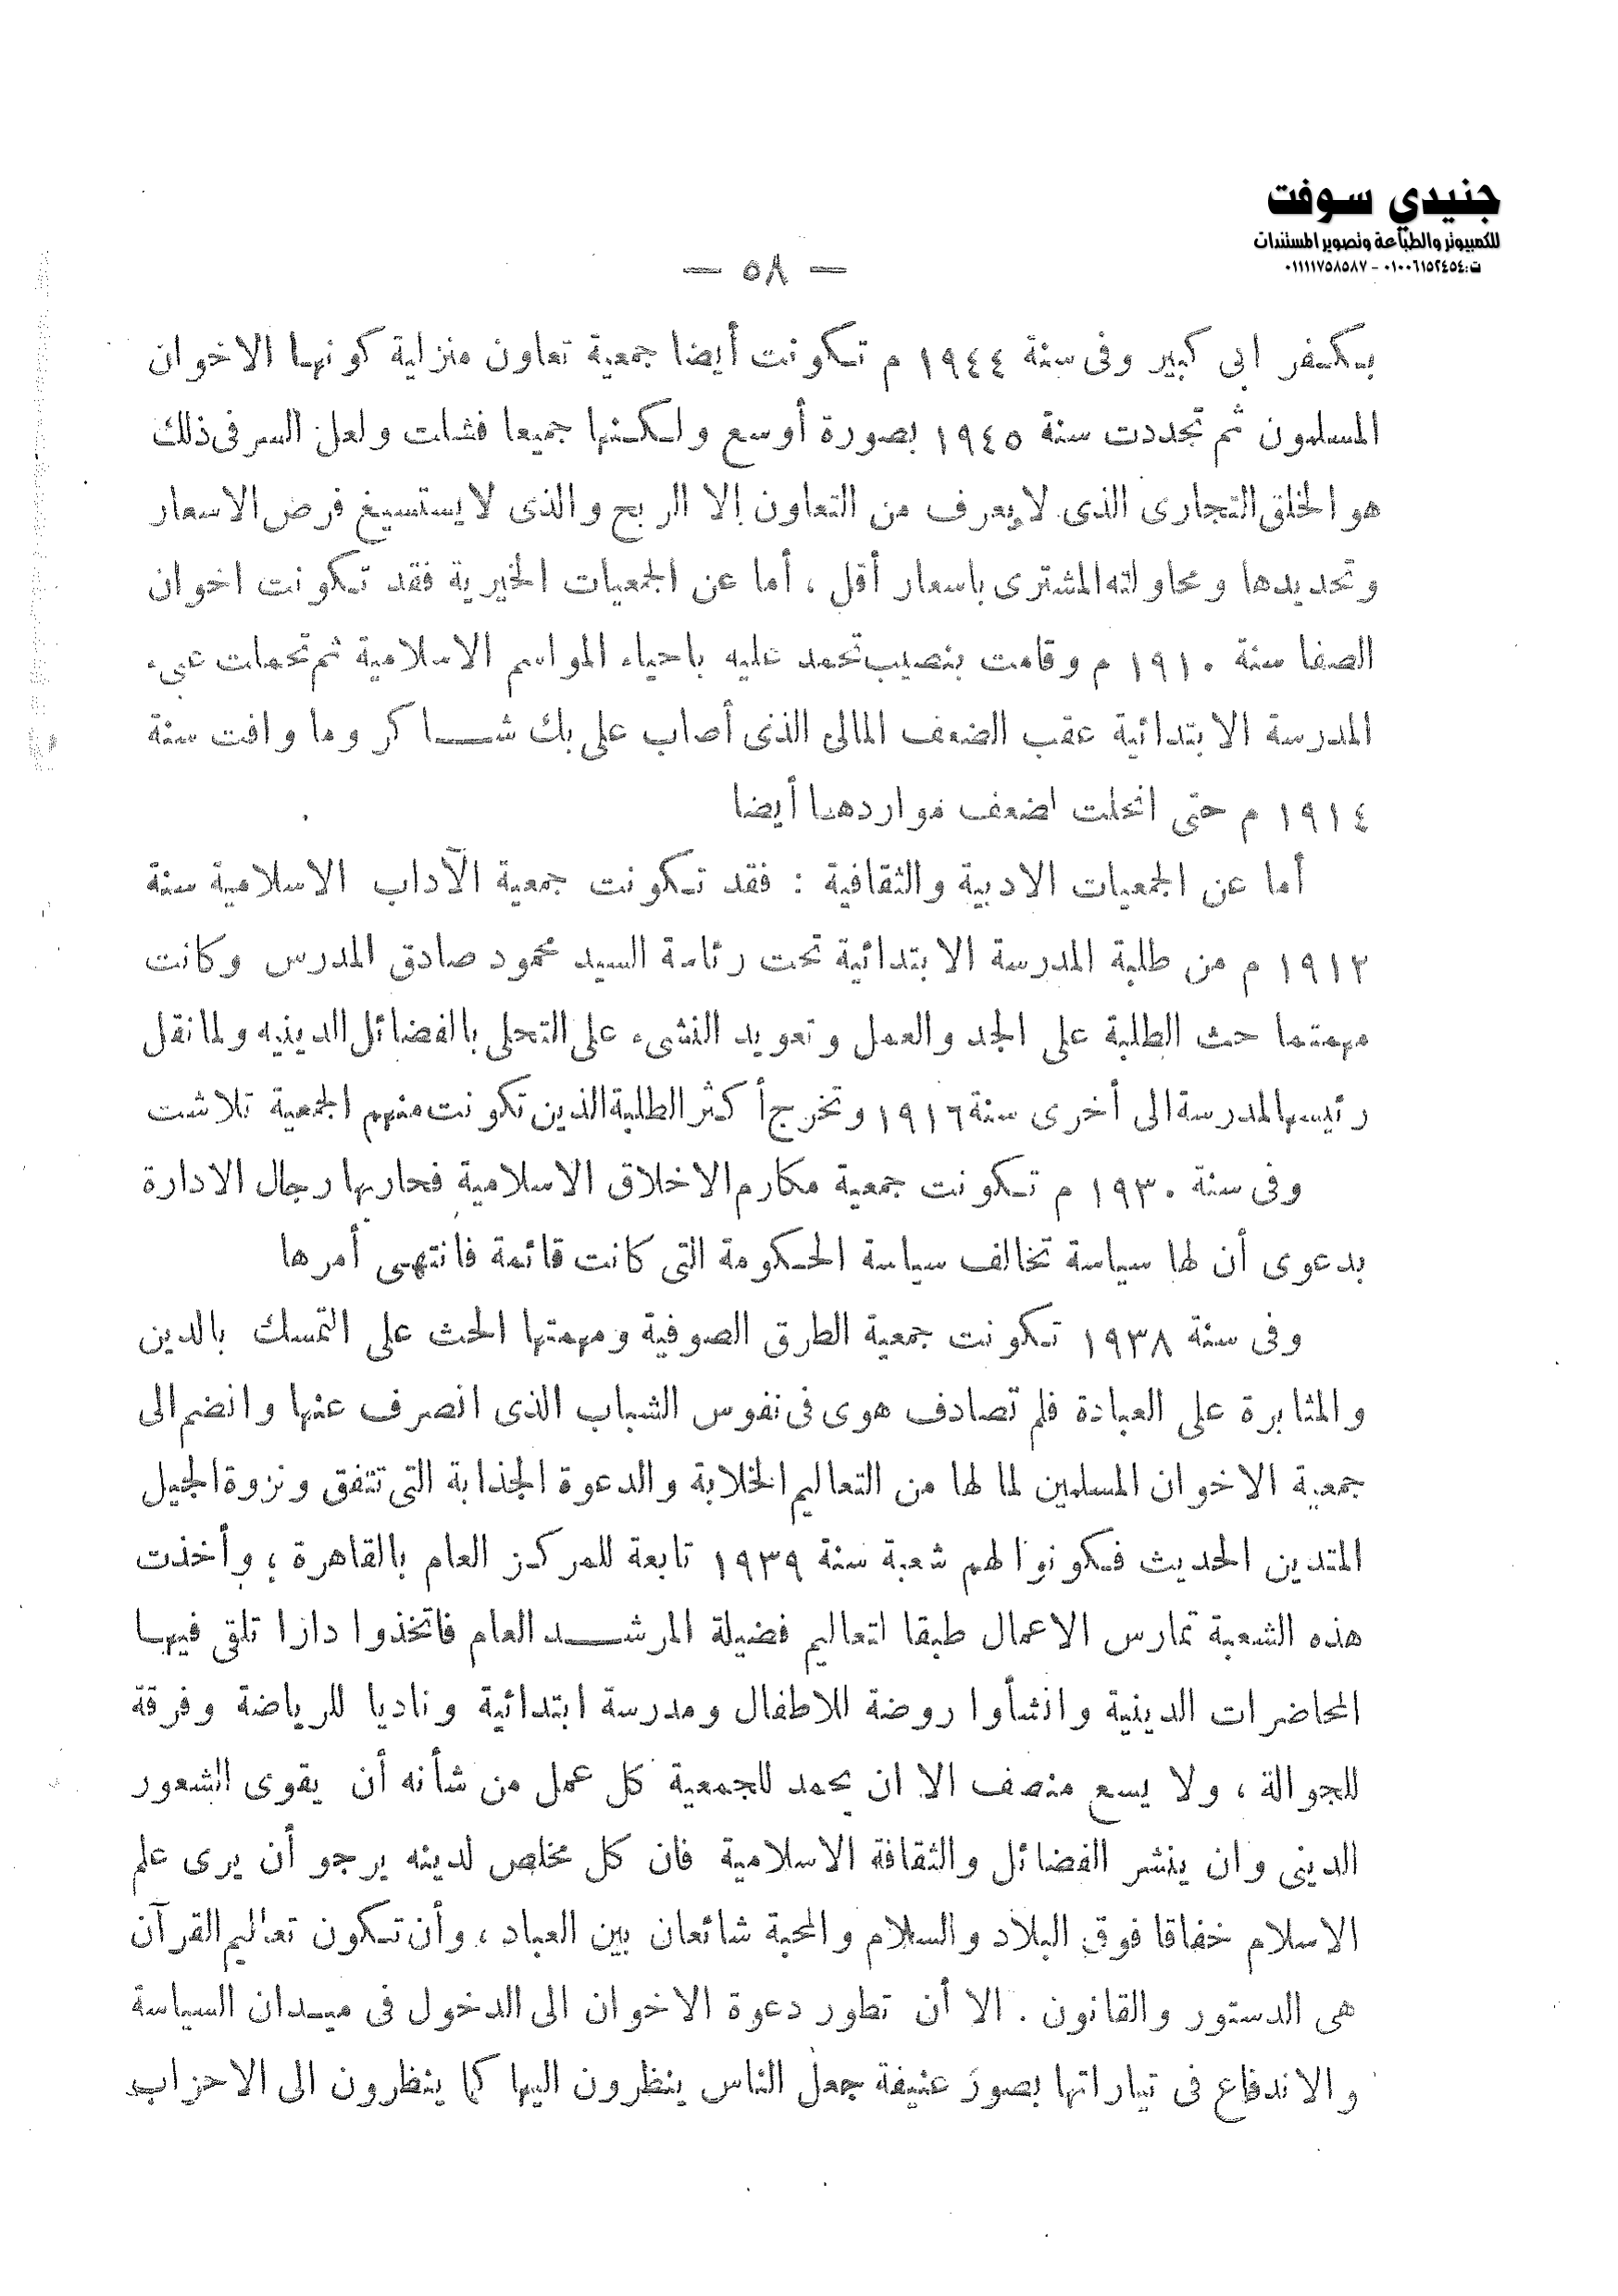 جنيدي سوفت
للكمبيوتر والطباعة وتصوير المستندات
ت:٠١٠٠٦١٥٢٤٥٤ - ٠١١١١٧٥٨٥٨٧
— ٥٨ —
بكفر ابى كبير وفى سنة ١٩٤٤ م تكونت أيضا جمعية تعاون منزلية كونها الاخوان
المسلمون ثم تجددت سنة ١٩٤٥ بصورة أوسع ولكنها جميعا فشلت ولعل السر فى ذلك
هو الخلق التجارى الذى لا يعرف من التعاون إلا الربح والذى لا يستسيغ فرض الاسعار
وتحديدها ومحاولته المشترى باسعار أقل ، أما عن الجمعيات الخيرية فقد تكونت اخوان
الصفا سنة ١٩١٠ م وقامت بنصيب تحمد عليه باحياء المواسم الاسلامية ثم تحملت عبىء
المدرسة الابتدائية عقب الضعف المالى الذى أصاب على بك شاكر وما وافت سنة
١٩١٤ م حتى انحلت لضعف مواردها أيضا
أما عن الجمعيات الادبية والثقافية : فقد تكونت جمعية الآداب الاسلامية سنة
١٩١٢ م من طلبة المدرسة الابتدائية تحت رئاسة السيد محمود صادق المدرس وكانت
مهمتما حث الطلبة على الجد والعمل وتعويد النشىء على التحلى بالفضائل الدينيه ولما نقل
رئيسها لمدرسة الى أخرى سنة ١٩١٦ وتخرج أكثر الطلبة الذين تكونت منهم الجمعية تلاشت
وفى سنة ١٩٣٠ م تكونت جمعية مكارم الاخلاق الاسلامية فحاربها رجال الادارة
بدعوى أن لها سياسة تخالف سياسة الحكومة التى كانت قائمة فانتهى أمرها
وفى سنة ١٩٣٨ تكونت جمعية الطرق الصوفية ومهمتها الحث على التمسك بالدين
والمثابرة على العبادة فلم تصادف هوى فى نفوس الشباب الذى انصرف عنها وانضم الى
جمعية الاخوان المسلمين لما لها من التعاليم الخلابة والدعوة الجذابة التى تتفق ونزوة الجيل
المتدين الحديث فكونوا لهم شعبة سنة ١٩٣٩ تابعة للمركز العام بالقاهرة ؛ وأخذت
هذه الشعبة تمارس الاعمال طبقا لتعاليم فضيلة المرشد العام فاتخذوا دارا تلقى فيها
المحاضرات الدينية وانشأوا روضة للاطفال ومدرسة ابتدائية وناديا للرياضة وفرقة
للجوالة ، ولا يسع منصف الا ان يحمد للجمعية كل عمل من شأنه أن يقوى الشعور
الدينى وان ينشر الفضائل والثقافة الاسلامية فان كل مخلص لدينه يرجو أن يرى علم
الاسلام خفاقا فوق البلاد والسلام والمحبة شائعان بين العباد ، وأن تكون تعاليم القرآن
هى الدستور والقانون . الا أن تطور دعوة الاخوان الى الدخول فى ميدان السياسة
والاندفاع فى تياراتها بصور عنيفة جعل الناس ينظرون اليها كما ينظرون الى الاحزاب